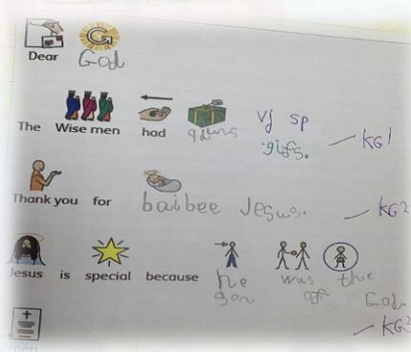 Dear God
The Wise men had gifts vj sp
gifs. KG1
Thank you for baibee Jesus. KG2
Jesus is special because he was the
son of God
KG3